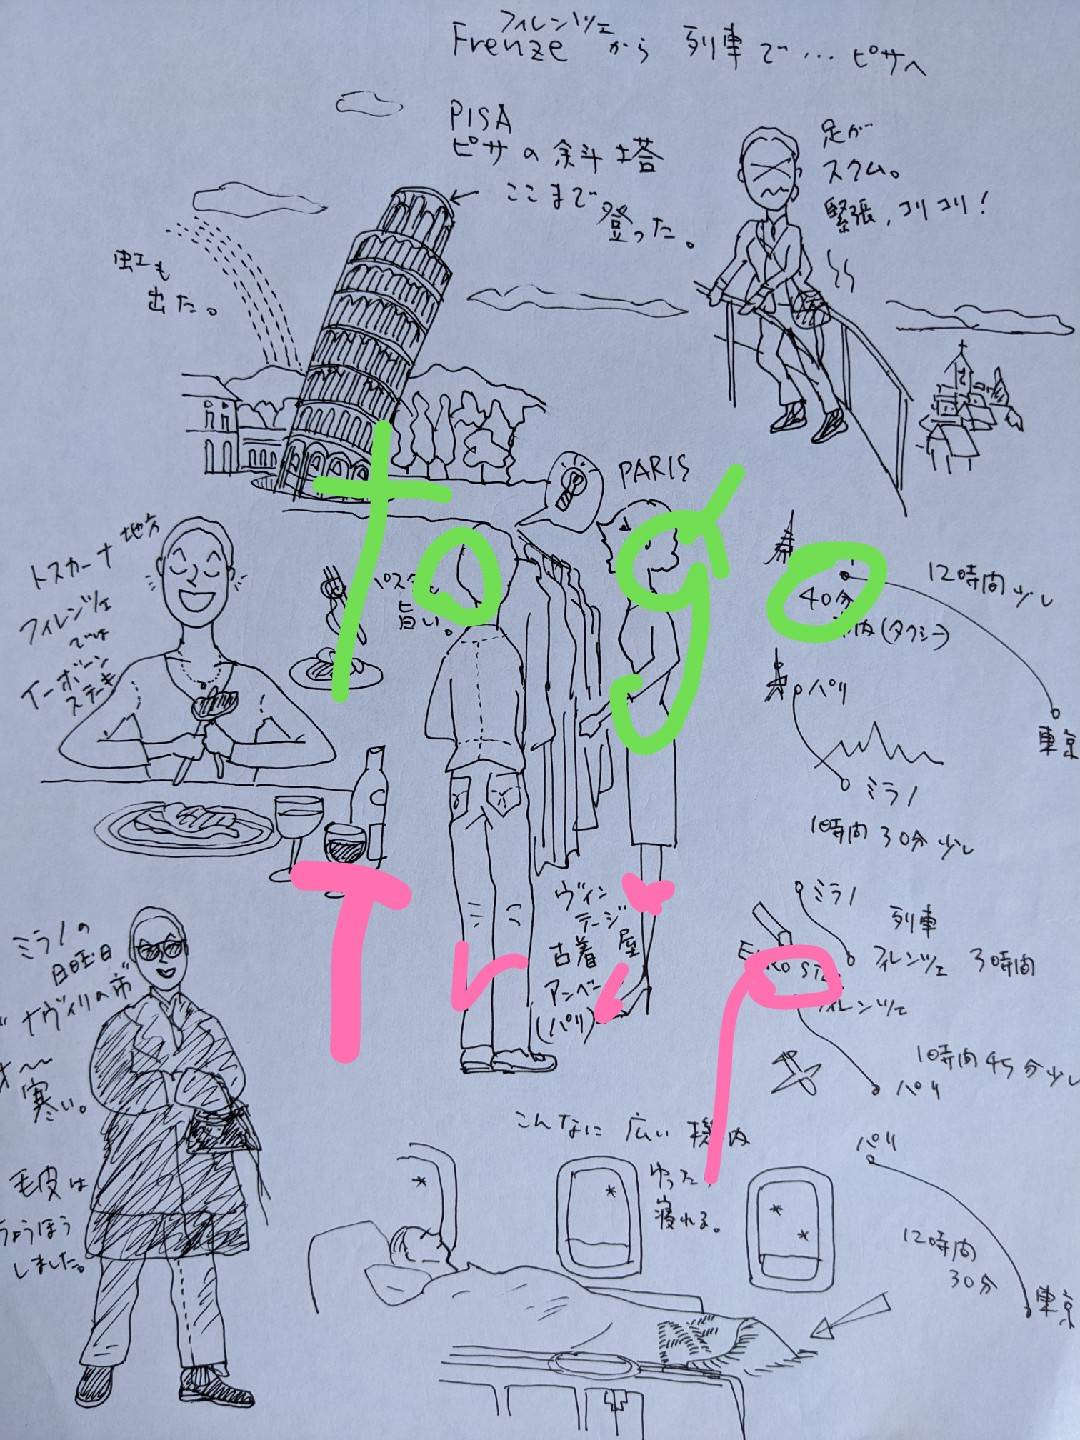 フィレンツェ
Frenzeから 列車で…ピサへ
PISA
ピサの斜塔
ここまで
登った。
足が
スクム。
緊張,コリコリ!
虹も
出た。
PARIS
トスカーナ地方
フィレンツェ
では
Tーボーン
ステーキ
旨い。
to go
40分
(タクシー)
12時間少し
東京
パリ
ミラノ
1時間30分少し
ヴィン
テージ
古着屋
アンベー
(パリ)
Trip
ミラノ
列車
フィレンツェ 3時間
フィレンツェ
1時間45分少し
パリ
ミラノの
日曜日
ナヴィリの市
寒い。
毛皮は
ちょうほう
しました。
こんなに 広い 機内
ゆった
寝れる。
パリ
12時間
30分
東京